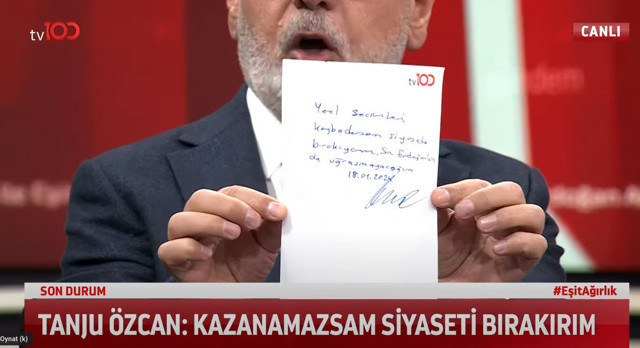 tv100
CANLI
tv100
Yerel seçimleri
kaybedersem siyaseti
bırakıyorum, Sn Erdoğan'la
da uğraşmayacağım
18.01.2024
SON DURUM
#EşitAğırlık
TANJU ÖZCAN: KAZANAMAZSAM SİYASETİ BIRAKIRIM
Oynat (k)